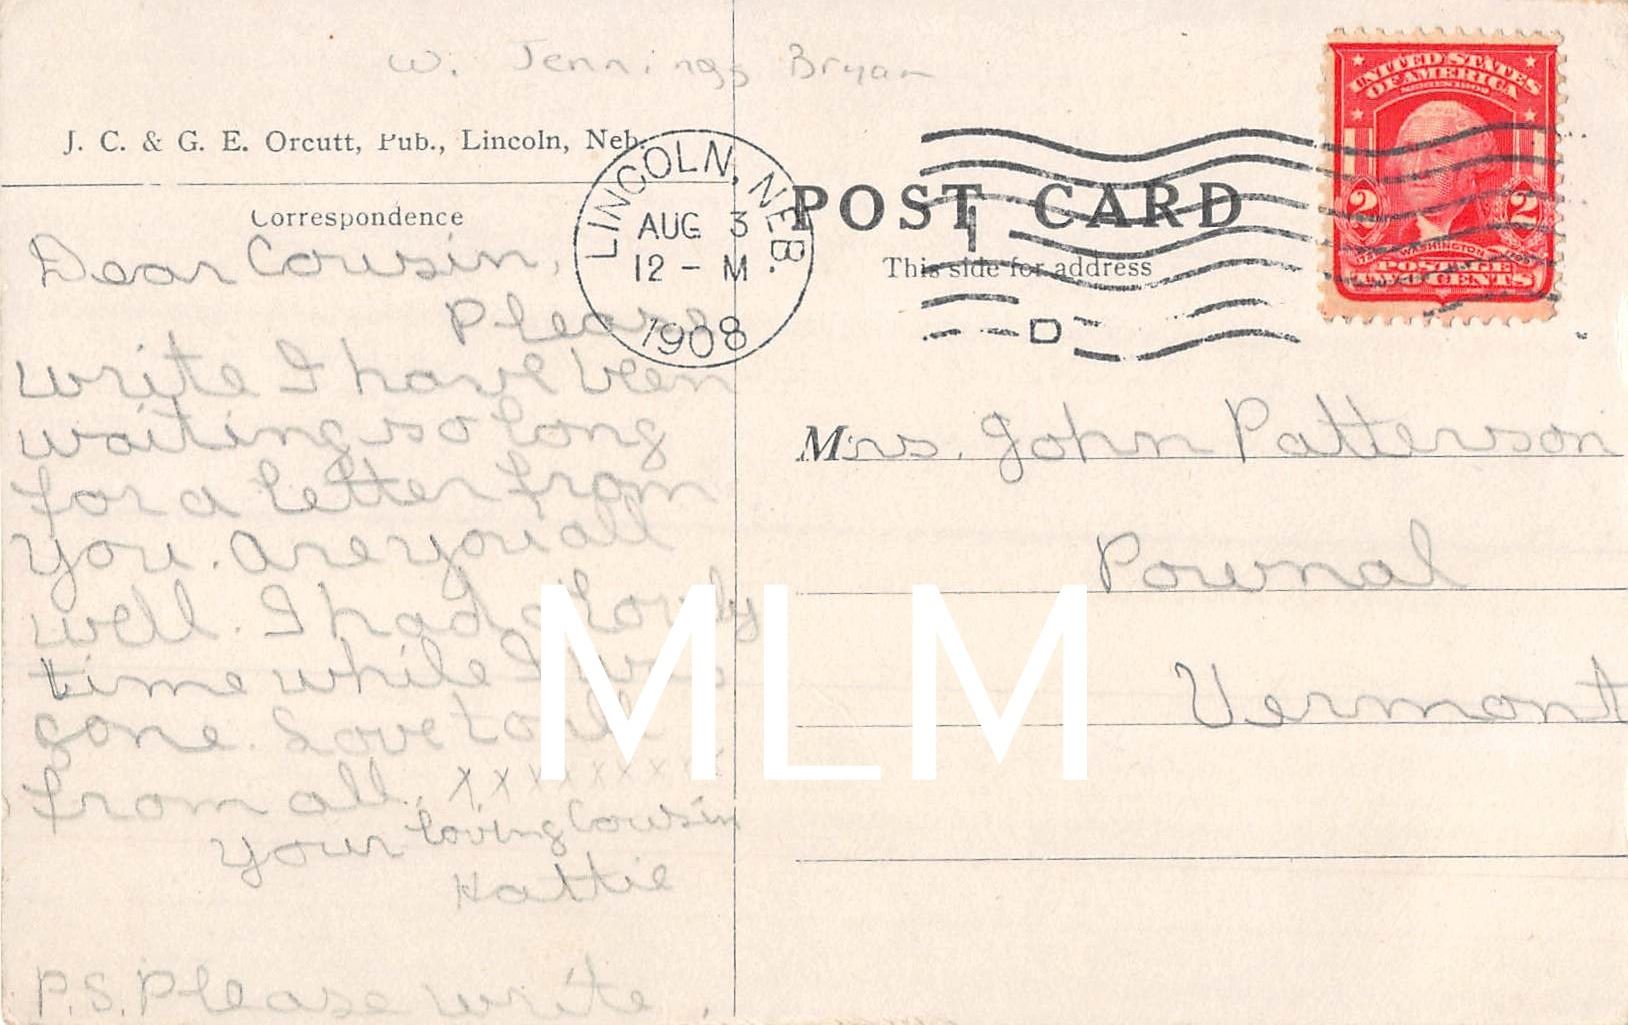 W. Jennings Bryan
J. C. & G. E. Orcutt, Pub., Lincoln, Neb.
LINCOLN, NEB.
AUG 3
12 - M
1908
POST CARD
This side for address
UNITED STATES
OF AMERICA
SERIES 1902
2 2
WASHINGTON
POSTAGE
TWO CENTS
1
D
Correspondence
Dear Cousin,
Please
write I have been
waiting so long
for a letter from
you. Are you all
well. I had a lovly
time while I was
gone. Love to all
from all. x x x x x x x x
your loving Cousin
Hattie
P.S. Please write.
Mrs. John Patterson
Pownal
Vermont
MLM